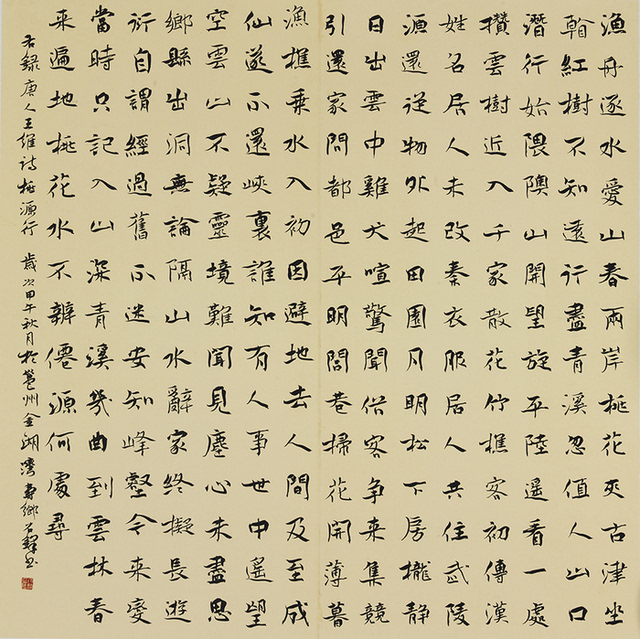 漁舟逐水愛山春兩岸桃花夾古津坐
看紅樹不知遠行盡青溪忽值人山口
潛行始隈隩山開望旋平陸遙看一處
攢雲樹近入千家散花竹樵客初傳漢
姓名居人未改秦衣服居人共住武陵
源還從物外起田園月明松下房櫳靜
日出雲中雞犬喧驚聞俗客爭来集競
引還家問都邑平明閭巷掃花開薄暮
漁樵乘水入初因避地去人間及至成
仙遂不還峽裏誰知有人事世中遙望
空雲山不疑靈境難聞見塵心未盡思
鄉縣出洞無論隔山水辭家終擬長遊
衍自謂經過舊不迷安知峰壑今来變
當時只記入山深青溪幾曲到雲林春
来遍地桃花水不辨僊源何處尋
右錄唐人王維詩桃源行 歲次甲午秋月於邕州金湖灣壽鄉石書